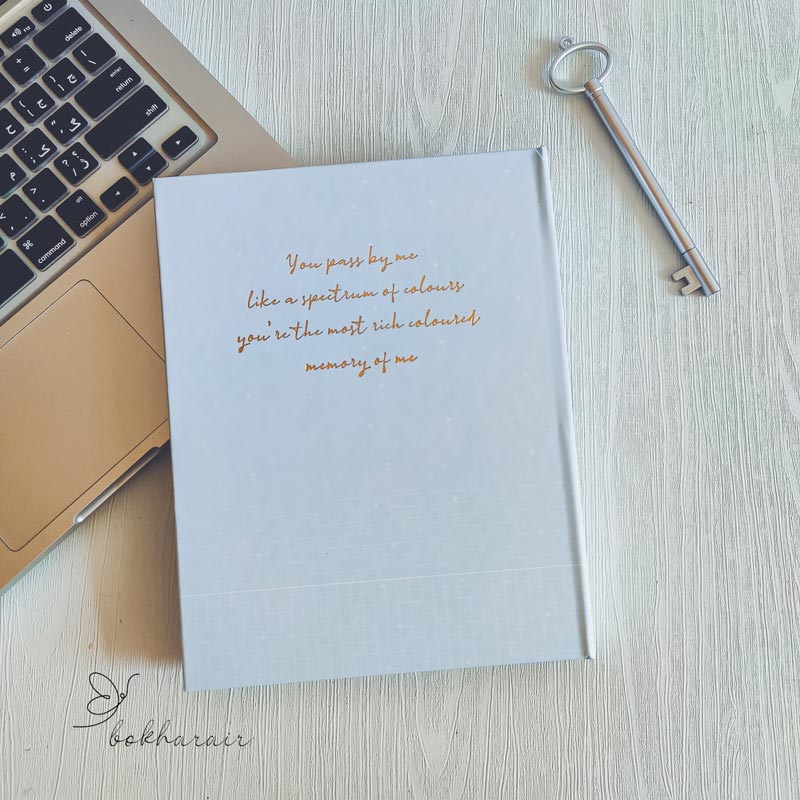 delete
enter
return
shift
alt
option
⌘
command
You pass by me
like a spectrum of colours
you're the most rich coloured
memory of me
bokharair